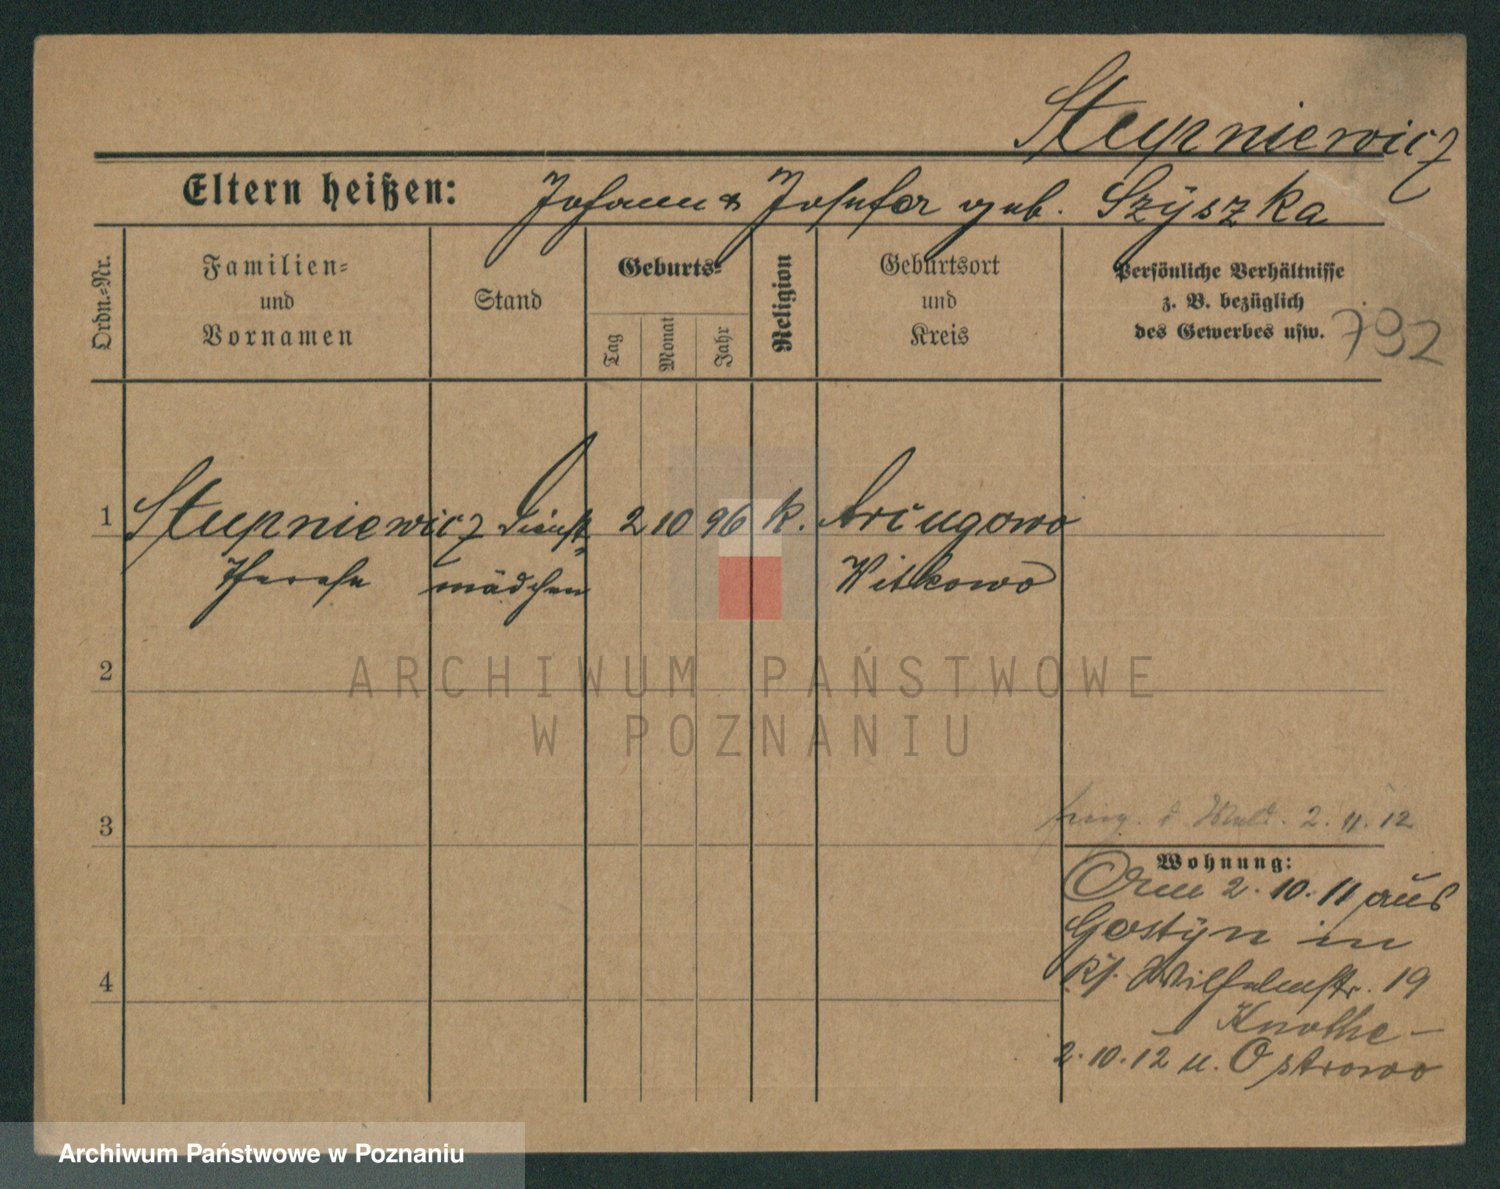 Stupniewicz
Eltern heißen: Johann & Josefa geb. Szÿszka
Ordn.-Nr.
Familien-
und
Vornamen
Stand
Geburts-
Tag
Monat
Jahr
Religion
Geburtsort
und
Kreis
Persönliche Verhältnisse
z. B. bezüglich
des Gewerbes usw.
792
1 Stupniewicz Dienst- 2 10 96 k.
Therese mädchen Witkowo
2
ARCHIWUM PAŃSTWOWE
W POZNANIU
3
2.11.12
Wohnung:
2.10.11 aus
Gostÿn in
Wilhelmstr. 19
Knothe –
2.10.12 n. Ostrowo
4
Archiwum Państwowe w Poznaniu